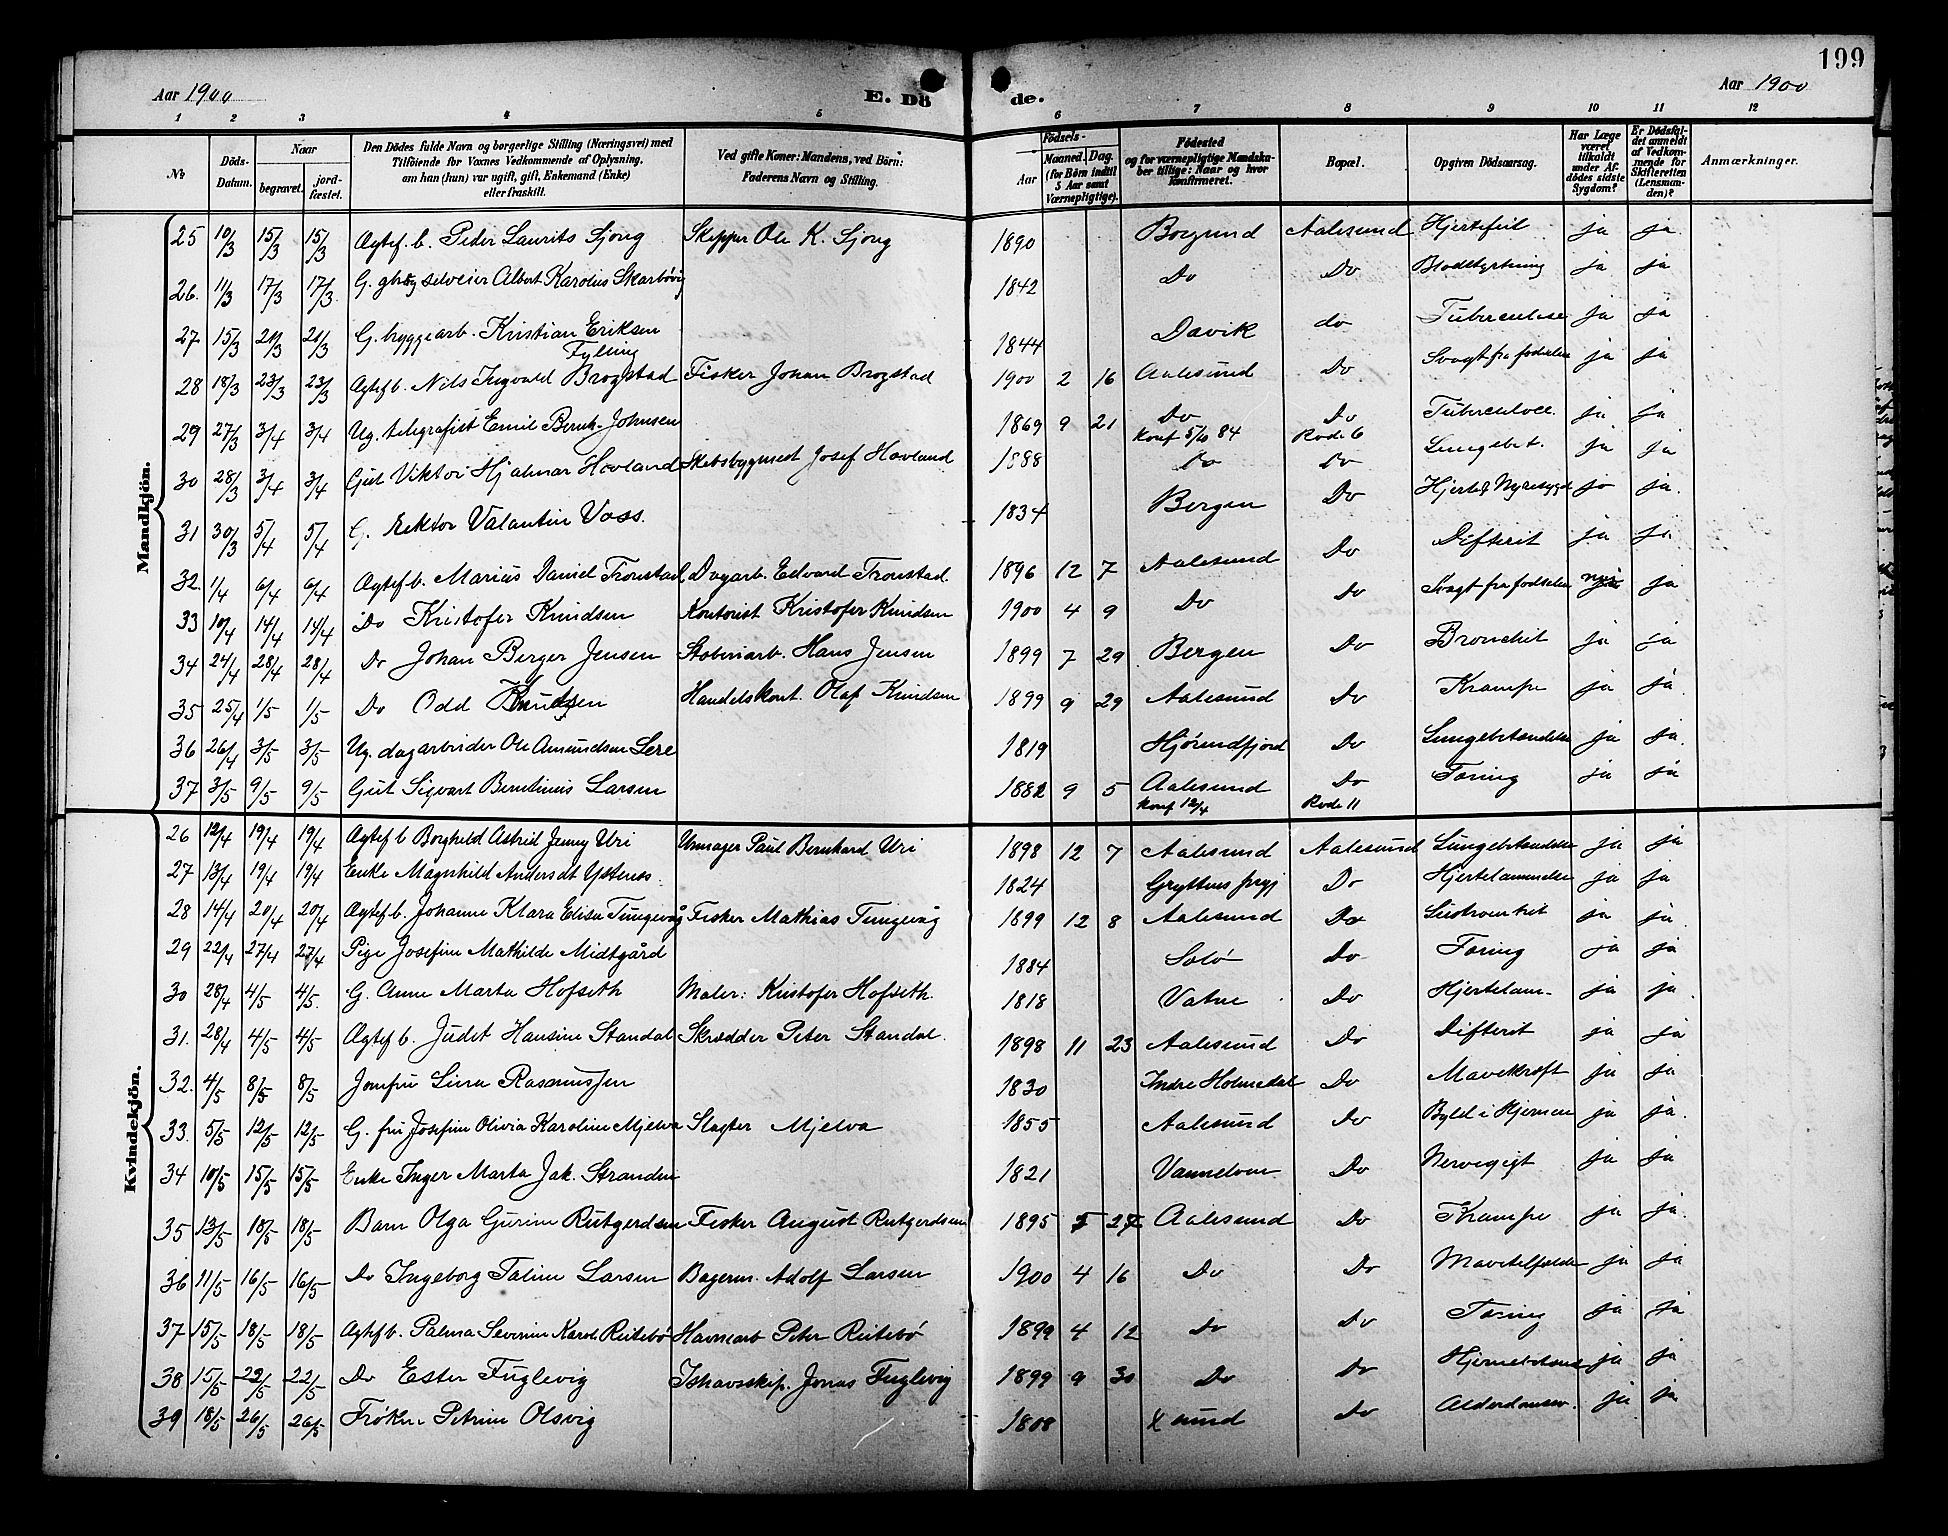 199
Aar 1900 E. Dö de. Aar 1900
1 2 3 4 5 6 7 8 9 10 11 12
№ Döds-Datum. Naar begravet. jord-fæstet. Den Dödes fulde Navn og borgerlige Stilling (Næringsvei) med Tilföiende for Voxnes Vedkommende af Oplysning, om han (hun) var ugift, gift, Enkemand (Enke) eller fraskilt. Ved gifte Koner: Mandens, ved Börn: Faderens Navn og Stilling. Födsels- Aar Maaned. Dag. (for Börn indtil 5 Aar samt Værnepligtige). Födested og for værnepligtige Mandska-ber tillige: Naar og hvor Konfirmeret. Bopæl. Opgiven Dödsaarsag. Har Læge været tilkaldt under Af-dödes sidste Sygdom? Er Dödsfal-det anmeldt af Vedkom-mende for Skifteretten (Lensman-den)? Anmærkninger.
Mandkjön.
25 10/3 15/3 15/3 Agtef. b. Peder Laurits Sjong Skipper Ole K. Sjong 1890 Borgund Aalesund Hjertefeil ja ja
26. 11/3 17/3 17/3. G. Albert Karolius Skarbövig 1842 Do Do ja ja
27 15/3 21/3 G. byggearb. Kristian Eriksen Fylling 1844 Davik do Tuberculose ja ja
28 18/3 23/3 23/3 Agtef b. Nils Ingvald Brogstad Fisker Johan Brogstad 1900 2 16 Aalesund Do Svagt fra fødselen ja ja
29 27/3 3/4 3/4 Ug. telegrafist Emil Bernh. Johnsen 1869 9 21 Do Do ja ja
Konf 5/10 84 Rode 6
30 28/3 3/4 3/4 Gut Viktor Hjalmar Hovland Skibsbygmest Josef Hovland 1888 Do Do Lungebet. ja ja
31 30/3 5/4 5/4 G. Rektor Valantin Voss. 1834 Bergen Do Hjerte & Nyresygd ja ja.
32. 1/4 6/4 6/4 Agtef b. Marius Daniel Tronstad Dagarb. Edvard Tronstad. 1896 12 7 Aalesund Do Difterit ja ja
33 10/4 14/4 14/4 Do Kristofer Knudsen Kontorist Kristofer Knudsen 1900 4 9 Do Do Svagt fra fødselen ja
34 24/4 28/4 28/4 Do Johan Berger Jensen Stoberiarb. Hans Jensen 1899 7 29 Bergen Do Bronchit ja ja
35 25/4 1/5 1/5 Do Odd Knudsen Handelskont. Olaf Knudsen 1899 9 29 Aalesund Do Krampe ja ja
36 26/4 3/5 3/5 Ug. dagarbeider Ole Amundsen Lere 1819 Hjørundfjord Do Lungebetændelse ja ja.
37 3/5 9/5 9/5 Gut Sigvart Berntinius Larsen 1882 9 5 Aalesund Do Tæring ja ja
Konf 12/4 Rode 11
Kvindekjön.
26 12/4 19/4 19/4 Agtef b Borghild Astrid Jenny Uri Urmager Paul Bernhard Uri 1898 12 7 Aalesund Aalesund Lungebetændelse ja ja
27 13/4 19/4 19/4 Enke Magnhild Andersdt Ystenes. 1824 Gryttens prgj Do Hjertelammelse ja ja
28 14/4 20/4 20/4 Agtef b. Johanne Klara Elisa Tungevåg Fisker Mathias Tungevåg 1899 12 8 Aalesund Do ja ja
29 22/4 27/4 27/4 Pige Josefine Mathilde Midtgård 1884 Do Tæring ja ja
30 28/4 4/5 4/5. G. Anne Marta Hofseth Maler: Kristofer Hofseth. 1818 Vatne Do Hjertelam- ja ja
31. 28/4 4/5 4/5 Agtef b. Judet Hansine Standal Skrædder Peter Standal. 1898 11 23 Aalesund Do Difterit ja ja
32. 4/5 8/5 8/5 Jomfru Lina Rasmussen 1830 Indre Holmedal Do Mavekræft ja ja
33. 5/5 12/5 12/5 G. fru Josefine Olivia Karoline Mjelva Slagter Mjelva 1855 Aalesund Do Byld i Hjernen ja ja.
34 10/5 15/5 15/5 Enke Inger Marta Jak. Stranden 1821 Vannelven Do Nervegigt ja ja
35 13/5 18/5 18/5 Barn Olga Gurine Rutgerdsen Fisker August Rutgerdsen 1895 5 27 Aalesund Do Krampe ja ja.
36 11/5 16/5 16/5 Do Ingeborg Taline Larsen Bagerm. Adolf Larsen 1900 4 16 Do Do ja ja
37 15/5 18/5 18/5 Agtef b. Palma Severine Karol. Reitebø Havnearb Peter Reitebø 1899 4 12 Do Do Tæring ja ja
38 15/5 22/5 22/5 Do Ester Fuglevig Ishavsskip. Jonas Fuglevig 1899 9 30 Do Do ja ja
39 18/5 26/5 26/5 Frøken Petrine Olsvig 1808 X sund Do ja ja